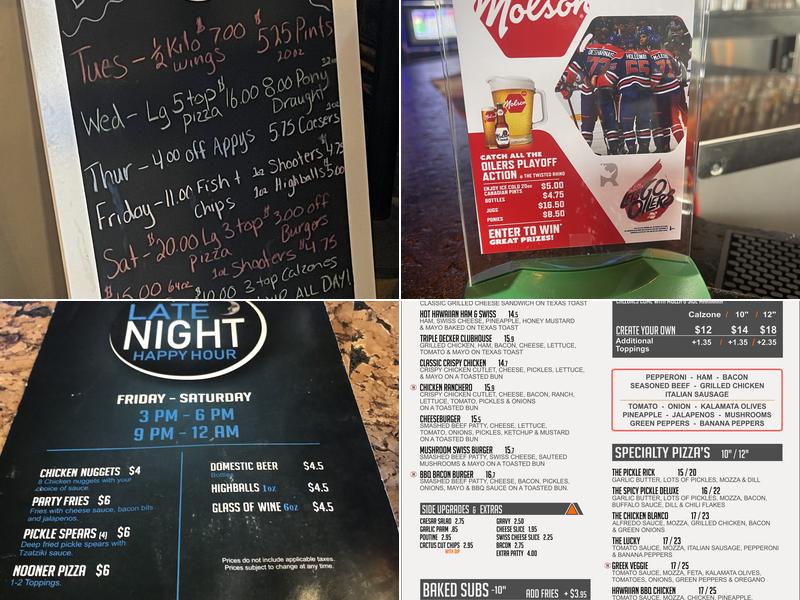 Tues - ½ Kilo $7.00 $5.25 Pints
wings 20oz
Wed - Lg 5 top $16.00 8.00 Pony
pizza Draught
Thur - 4.00 off Appys 5.75 Caesers
Friday - 11.00 Fish + 1oz Shooters $4.75
Chips 1oz Highballs $5.00
Sat - $20.00 Lg 3 top $3.00 off
pizza Burgers
1oz Shooters $4.75
$15.00 64oz
$10.00 3 top Calzones
ALL DAY!
Molson
DESHARNAIS
HOLLOWAY
McLEOD
73
55
71
Molson
CATCH ALL THE
OILERS PLAYOFF
ACTION @ THE TWISTED RHINO
ENJOY ICE COLD 20oz $5.00
CANADIAN PINTS
BOTTLES $4.75
JUGS $16.50
PONIES $8.50
ENTER TO WIN*
GREAT PRIZES!
GO
OILERS
LATE
NIGHT
HAPPY HOUR
FRIDAY - SATURDAY
3 PM - 6 PM
9 PM - 12 AM
CHICKEN NUGGETS $4
8 Chicken nuggets with your
choice of sauce.
PARTY FRIES $6
Fries with cheese sauce, bacon bits
and jalapenos.
PICKLE SPEARS (4) $6
Deep fried pickle spears with
Tzatziki sauce.
NOONER PIZZA $6
1-2 Toppings.
DOMESTIC BEER $4.5
Bottles
HIGHBALLS 1oz $4.5
GLASS OF WINE 6oz $4.5
Prices do not include applicable taxes.
Prices subject to change at any time.
CLASSIC GRILLED CHEESE SANDWICH ON TEXAS TOAST
HOT HAWAIIAN HAM & SWISS 14.5
HAM, SWISS CHEESE, PINEAPPLE, HONEY MUSTARD
& MAYO BAKED ON TEXAS TOAST
TRIPLE DECKER CLUBHOUSE 15.9
GRILLED CHICKEN, HAM, BACON, CHEESE, LETTUCE,
TOMATO & MAYO ON TEXAS TOAST
CLASSIC CRISPY CHICKEN 14.7
CRISPY CHICKEN CUTLET, CHEESE, PICKLES, LETTUCE,
& MAYO ON A TOASTED BUN
CHICKEN RANCHERO 15.9
CRISPY CHICKEN CUTLET, CHEESE, BACON, RANCH,
LETTUCE, TOMATO, PICKLES & ONIONS
ON A TOASTED BUN
CHEESEBURGER 15.5
SMASHED BEEF PATTY, CHEESE, LETTUCE,
TOMATO, ONIONS, PICKLES, KETCHUP & MUSTARD
ON A TOASTED BUN
MUSHROOM SWISS BURGER 15.7
SMASHED BEEF PATTY, SWISS CHEESE, SAUTEED
MUSHROOMS & MAYO ON A TOASTED BUN
BBQ BACON BURGER 16.7
SMASHED BEEF PATTY, CHEESE, BACON, PICKLES,
ONIONS, MAYO & BBQ SAUCE ON A TOASTED BUN.
SIDE UPGRADES & EXTRAS
CAESAR SALAD 2.75
GARLIC PARM .85
POUTINE 2.95
CACTUS CUT CHIPS 2.95
WITH DIP
GRAVY 2.50
CHEESE SLICE 1.95
SWISS CHEESE SLICE 2.25
BACON 2.75
EXTRA PATTY 4.00
BAKED SUBS -10" ADD FRIES + $3.95
Calzone / 10" / 12"
CREATE YOUR OWN $12 $14 $18
Additional +1.35 / +1.35 / +2.35
Toppings
PEPPERONI - HAM - BACON
SEASONED BEEF - GRILLED CHICKEN
ITALIAN SAUSAGE
TOMATO - ONION - KALAMATA OLIVES
PINEAPPLE - JALAPENOS - MUSHROOMS
GREEN PEPPERS - BANANA PEPPERS
SPECIALTY PIZZA'S 10" / 12"
THE PICKLE RICK 15 / 20
GARLIC BUTTER, LOTS OF PICKLES, MOZZA & DILL
THE SPICY PICKLE DELUXE 16 / 22
GARLIC BUTTER, LOTS OF PICKLES, MOZZA, BACON,
BUFFALO SAUCE, DILL & CHILI FLAKES
THE CHICKEN BLANCO 17 / 23
ALFREDO SAUCE, MOZZA, GRILLED CHICKEN, BACON
& GREEN ONIONS
THE LUCKY 17 / 23
TOMATO SAUCE, MOZZA, ITALIAN SAUSAGE, PEPPERONI
& BANANA PEPPERS
GREEK VEGGIE 17 / 25
TOMATO SAUCE, MOZZA, FETA, KALAMATA OLIVES,
TOMATOES, ONIONS, GREEN PEPPERS & OREGANO
HAWAIIAN BBQ CHICKEN 17 / 25
TOMATO SAUCE, MOZZA, CHICKEN, PINEAPPLE,